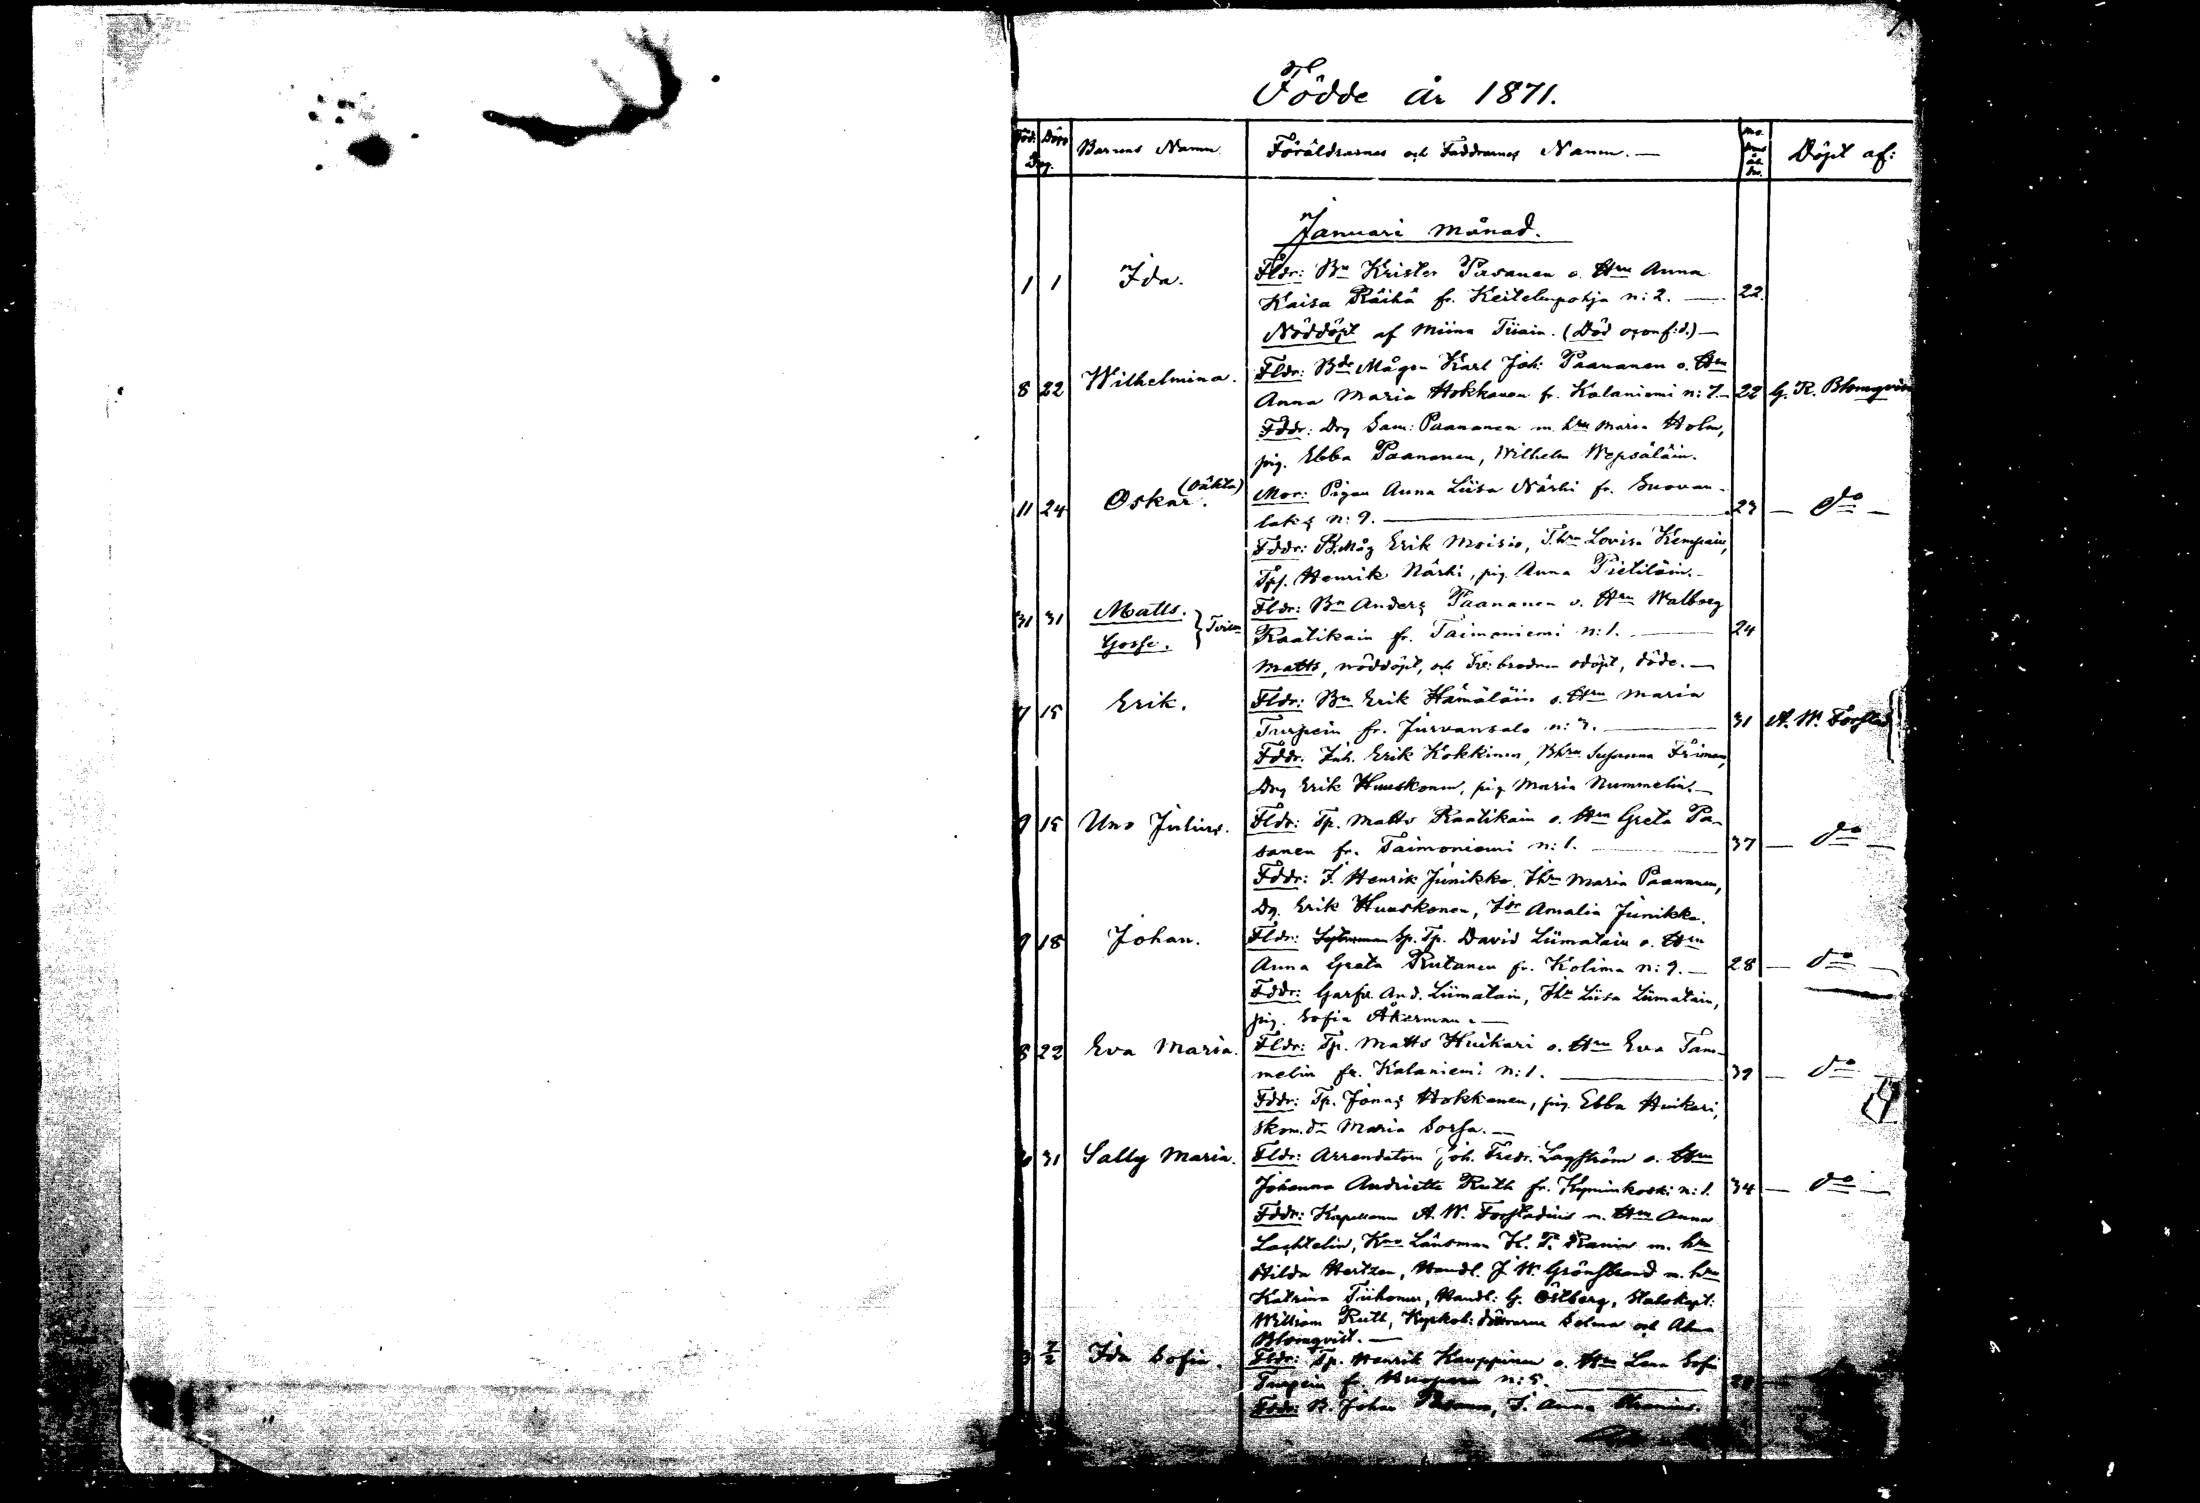 Födde år 1871.
Föd. Döps Dag. Barnens Namn. Föräldrarnes och Faddrarnes Namn. — Döpt af:
Januari månad.
1 1 Ida. Fldr: Bn Krister Pasanen o. Hru Anna
Kaisa Räihä fr. Keitelepohja n: 2. — 22
Nöddöpt af Miina Tiiain. (Död o:onf:d.) —
8 22 Wilhelmina. Fldr: Bde Mågen Karl Joh: Paananen o. Hru
Anna Maria Hokkanen fr. Kalaniemi n: 7. — 22 G. R. Blomqvist
Fddr: Drg Sam: Paananen m. hru Maria Holm,
pig. Ebba Paananen, Wilhelm Wepsäläin.
11 24 Oskar. (oäkta) Mor: Pigan Anna Liisa Närhi fr. Suovan-
laks n: 9. — 23 — do —
Fddr: B.Måg Erik Moisio, T.hru Lovisa Kempain,
Tps. Henrik Närhi, pig. Anna Pietiläin. —
31 31 Matts. Gosse. } Tvill. Fldr: Bn Anders Paananen o. Hru Walborg
Raatikain fr. Taimoniemi n: 1. — 24
Matts, nöddöpt, och tv: brodren odöpt, döde. —
7 15 Erik. Fldr: Bn Erik Hämäläin o. Hru Maria
Turpein fr. Jurvansalo n: 3. — 31 A. W. Forstad
Fddr. Inh. Erik Kokkinen, Bhru Susanna Friman,
Drg Erik Huuskonen, pig Maria Nummelin. —
9 15 Uno Julius. Fldr: Tp. Matts Raatikain o. Hru Greta Pa-
sanen fr. Taimoniemi n: 1. — 37 — do —
Fddr: I. Henrik Junikka, Ihru Maria Paananen,
Dg. Erik Huuskonen, Idr Amalia Junikka.
9 18 Johan. Fldr: Sp. Tp. David Liimatain o. Hru
Anna Greta Rutanen fr. Kolima n: 9. — 28 — do —
Fddr: Garfv. And. Liimatain, Ihr Liisa Liimatain,
pig. Sofia Åkerman. —
8 22 Eva Maria. Fldr: Tp. Matts Huikari o. Hru Eva Tam-
melin fr. Kalaniemi n: 1. — 39 — do —
Fddr: Tp. Jonas Hokkanen, pig. Ebba Huikari,
skom. dr Maria Sorsa. —
31 Sally Maria. Fldr: Arrendatorn Joh. Fredr. Lagström o. Hru
Johanna Andriette Ruth fr. Kyminkoski n: 1. 34 — do —
Fddr: Kapellanen A. W. Forstadius m. Hru Anna
Lachtelin, Kno Länsman K. F. Ranin m. hru
Hilda Hertzen, Handl. J. W. Grönstrand m. hru
Katrina Tiihonen, Handl: G. Östberg, Stabskapt:
William Ruth, Kyrkoh: döttrarne Selma och
Blomqvist. —
3 7/2 Ida Sofia. Fldr: Tp. Henrik Kauppinen o. Hru Lena Sofi
Turpein fr. n: 5. — 28
Fddr: B. Johan I. Anna